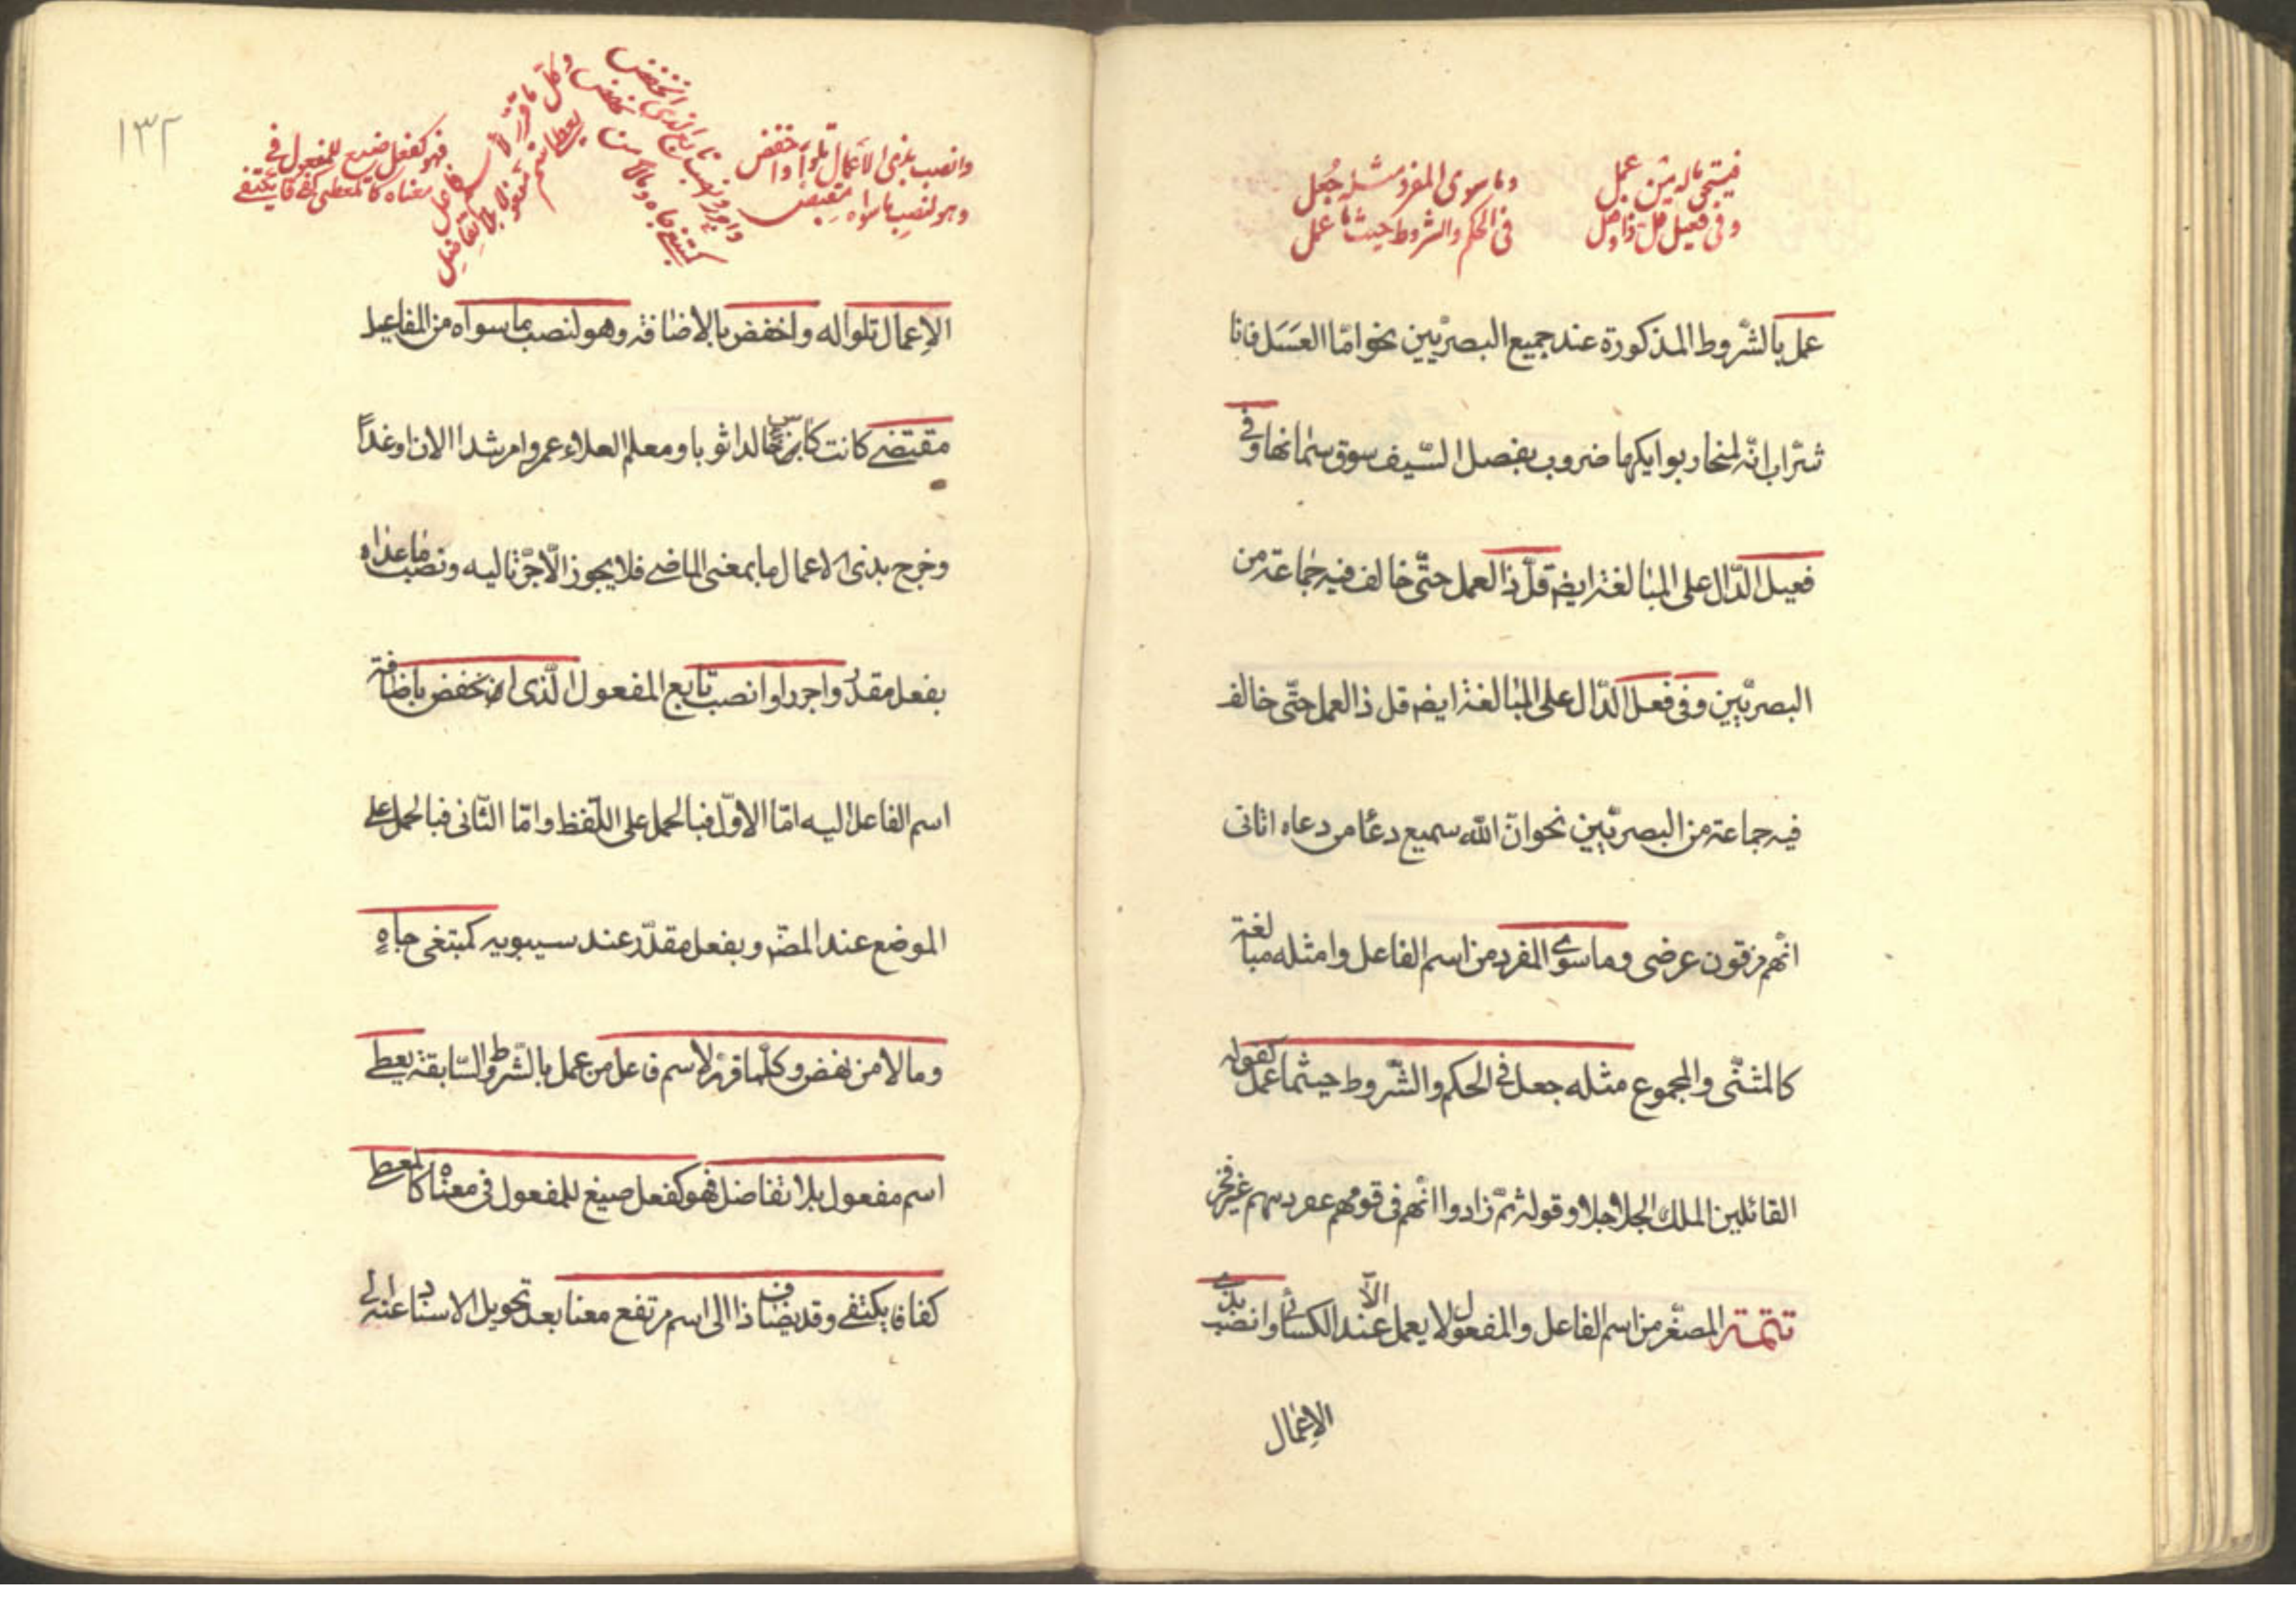 فيستحق ماله من عمل
وفي فعيل قل ذا وفعل
وما سوى المفرد مثله جعل
في الحكم والشروط حيثما عمل
عمل بالشّروط المذكورة عند جميع البصريّين نحو امّا العسَسَل فانا
شرّاب انّه لمنحار بوايكها ضروب بفصل السّيف سوق سمانها وفي
فعيل الدّال على المبالغة ايضم قلّ ذا العمل حتّى خالف فيه جماعة من
البصريّين وفي فعل الدّال على المبالغة ايضم قل ذا العمل حتّى خالف
فيه جماعة من البصريّين نحو انّ الله سميع دعٓا من دعاه اتانى
انّهم مزقون عرضى وما سوى المفرد من اسم الفاعل وامثله مبالغة
كالمثنّى والمجموع مثله جعل في الحكم والشّروط حيثما عمل كقوله
القائلين الملك الجلاجلا وقوله ثمّ زادوا انّهم في قومهم غفر ذنبهم غير فخر
تتمّة المصغّر من اسم الفاعل والمفعول لا يعمل الّا عند الكسائى وانصب بذى
الإعمال
١٣٢
وانصب بذى الاعمال تلوا واخفض
وهو لنصب ما سواه مقتضى
واجرر او انصب تابع الذى انخفض
كمبتغى جاه ومالا من نهض
وكل ما قرر لاسم فاعل
يعطى اسم مفعول بلا تفاضل
فهو كفعل صيغ للمفعول في
معناه كالمعطى كفافا يكتفى
الإعمال تلوا له واخفض بالاضافة وهو لنصب ما سواه من المفاعيل
مقتضى كانت كاس خالدا ثوبا ومعلم العلاء عمروا مرشدا الان او غداً
وخرج بذى الاعمال ما بمعنى الماضى فلا يجوز الّا جرّ تاليه ونصب ما عداه
بفعل مقدّر واجرر او انصب تابع المفعول الّذى انخفض باضافة
اسم الفاعل اليه امّا الاوّل فبالحمل على اللّفظ وامّا الثّانى فبالحمل على
الموضع عند المصّم وبفعل مقدّر عند سيبويه كمبتغى جاهٍ
ومالا من نهض وكلّما قرّر لاسم فاعل من عمل بالشّروط السّابقة يعطى
اسم مفعول بلا تفاضل فهو كفعل صيغ للمفعول في معناه كالمعطى
كفافا يكتفى وقد يضاف ذا الى اسم مرتفع معنا بعد تحويل الاسناد عنه الى